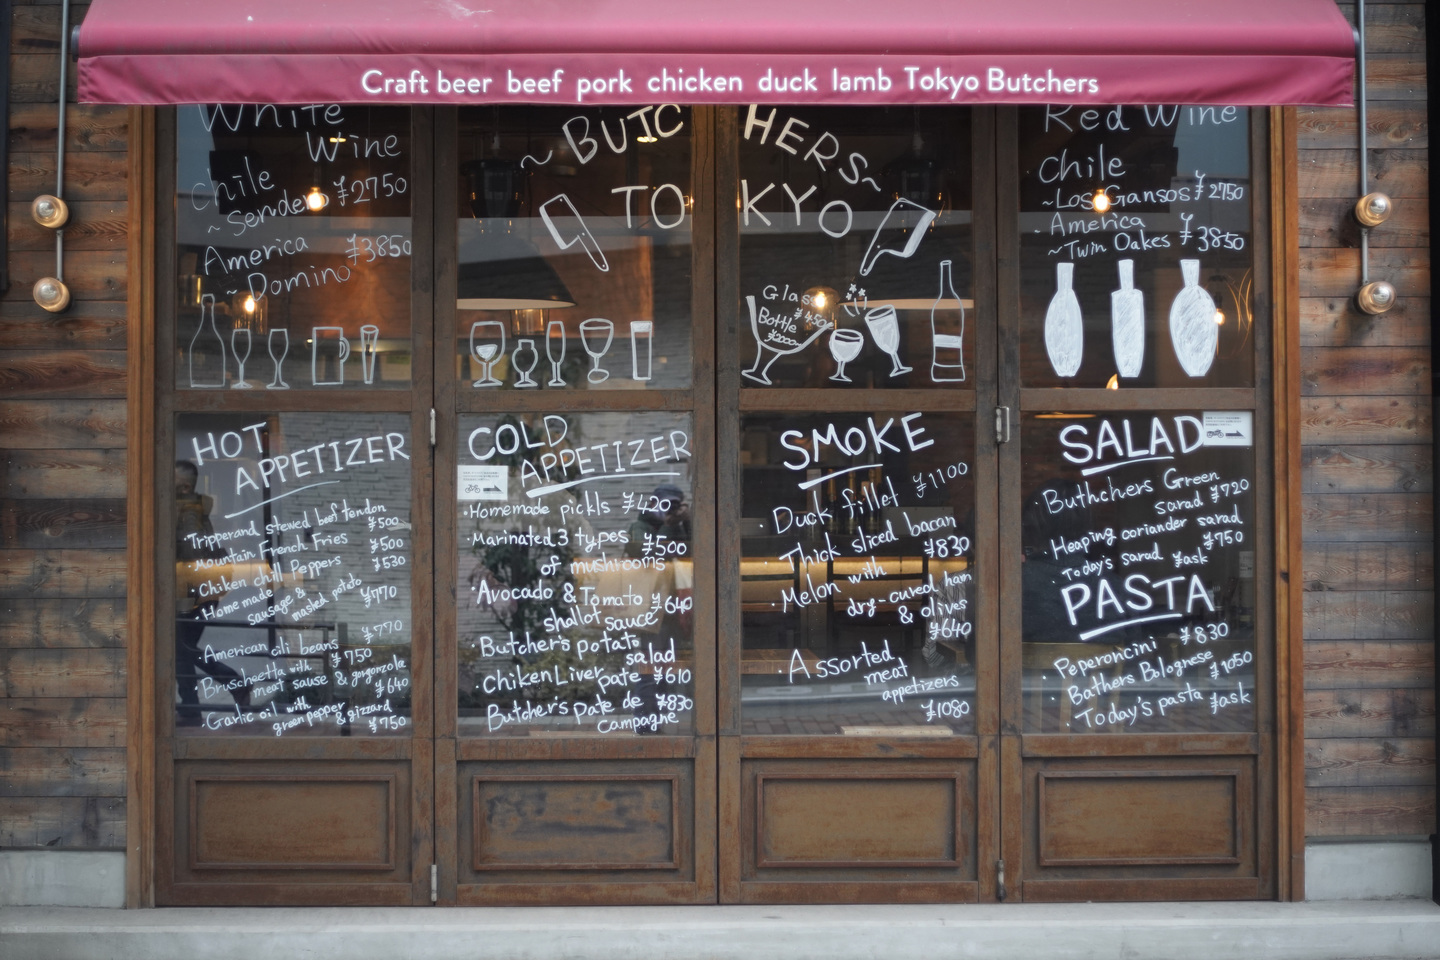 Craft beer beef pork chicken duck lamb Tokyo Butchers
White
Wine
Chile
~Sendero ¥2750
America ¥3850
~Domino
~BUTCHERS~
TOKYO
Glass
¥450
Bottle
Red Wine
Chile
~Los Gansos ¥2750
America
~Twin Oakes ¥3850
HOT
APPETIZER
·Tripperand stewed beef tendon
¥500
·Mountain French Fries ¥500
·Chiken chili Peppers ¥530
·Home made
sausage &
mashed potato ¥770
·American cili beans ¥770
·Bruscheetta with ¥750
meat sause & gorgonzola
¥640
·Garlic oil with
green pepper & gizzard
¥750
COLD
APPETIZER
·Homemade pickls ¥420
·Marinated 3 types ¥500
of mushrooms
·Avocado & Tomato ¥640
shallot sauce
·Butcher's potato
salad
·Chiken Liver pate ¥610
Butcher's Pate de ¥830
Campagne
SMOKE
·Duck fillet ¥1100
·Thick sliced bacan
¥830
·Melon with
dry-cured ham
& olives
¥640
·Assorted
meat
appetizers
¥1080
SALAD
·Buthchers Green
sarad ¥720
·Heaping coriander sarad
¥750
·Today's sarad ¥ask
PASTA
·Peperoncini ¥830
·Bathers Bolognese ¥1050
·Today's pasta ¥ask